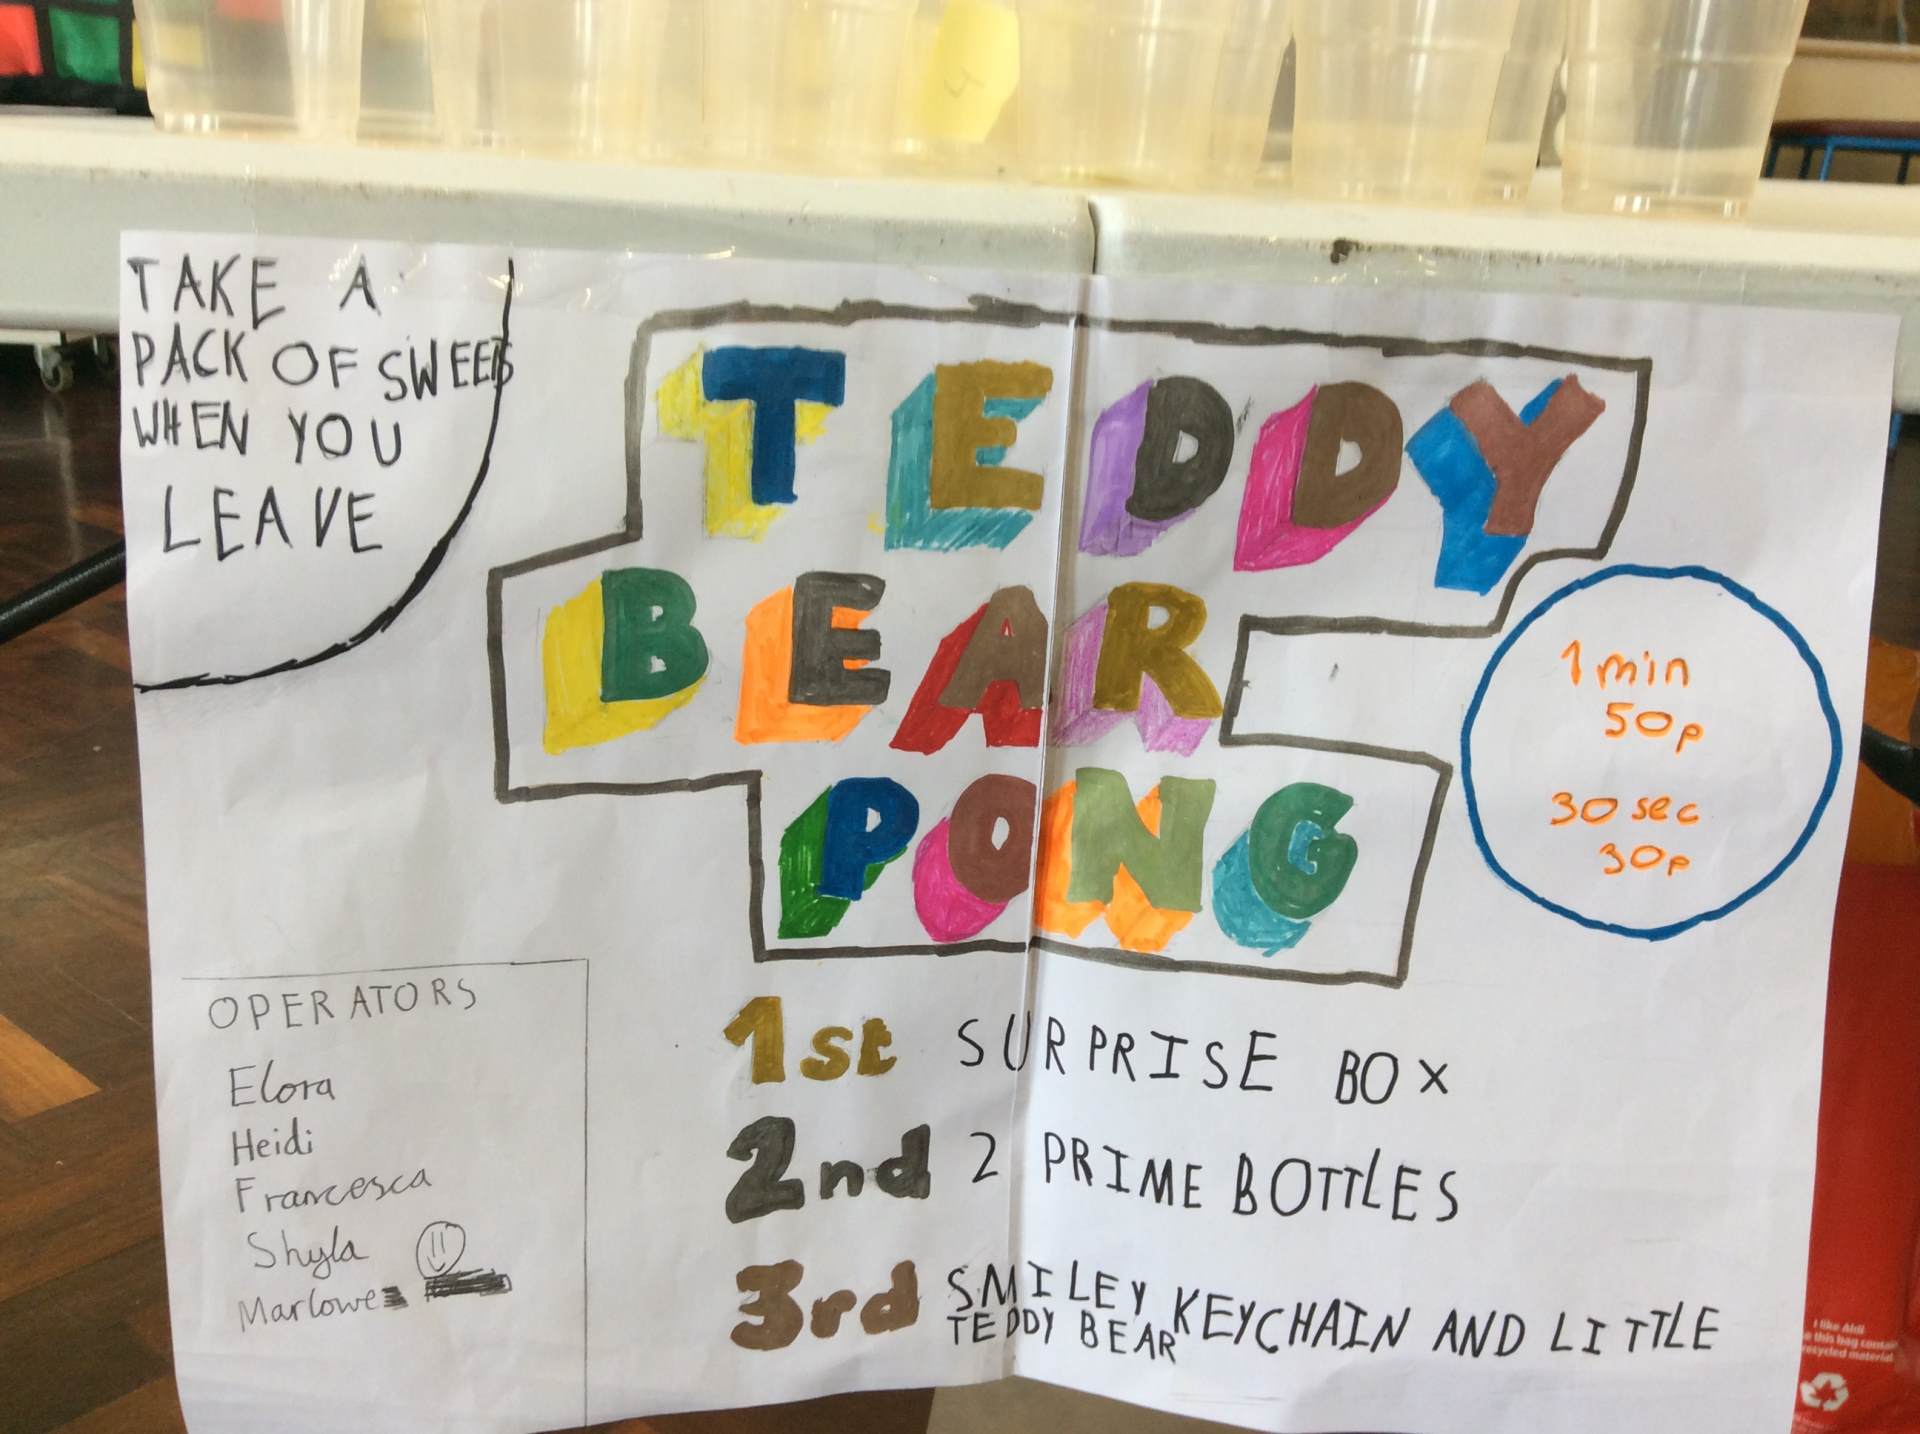 TAKE A
PACK OF SWEETS
WHEN YOU
LEAVE
TEDDY
BEAR
PONG
1 min
50p
30 sec
30p
OPERATORS
Elora
Heidi
Francesca
Shyla
Marlowe
1st SURPRISE BOX
2nd 2 PRIME BOTTLES
3rd SMILEY KEYCHAIN AND LITTLE
TEDDY BEAR
I like Aldi
this bag
recycled material